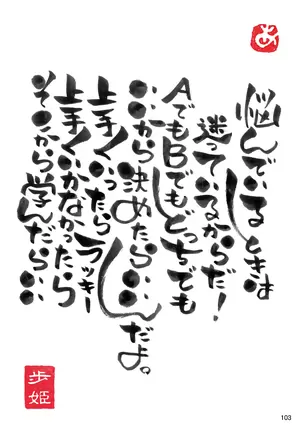 あ
悩んでいるときは
迷っているからだ！
AでもBでもどっちでも
いいから決めたらいいんだよ。
上手くいったらラッキー
上手くいかなかったら
そこから学んだらいい
歩姫
103